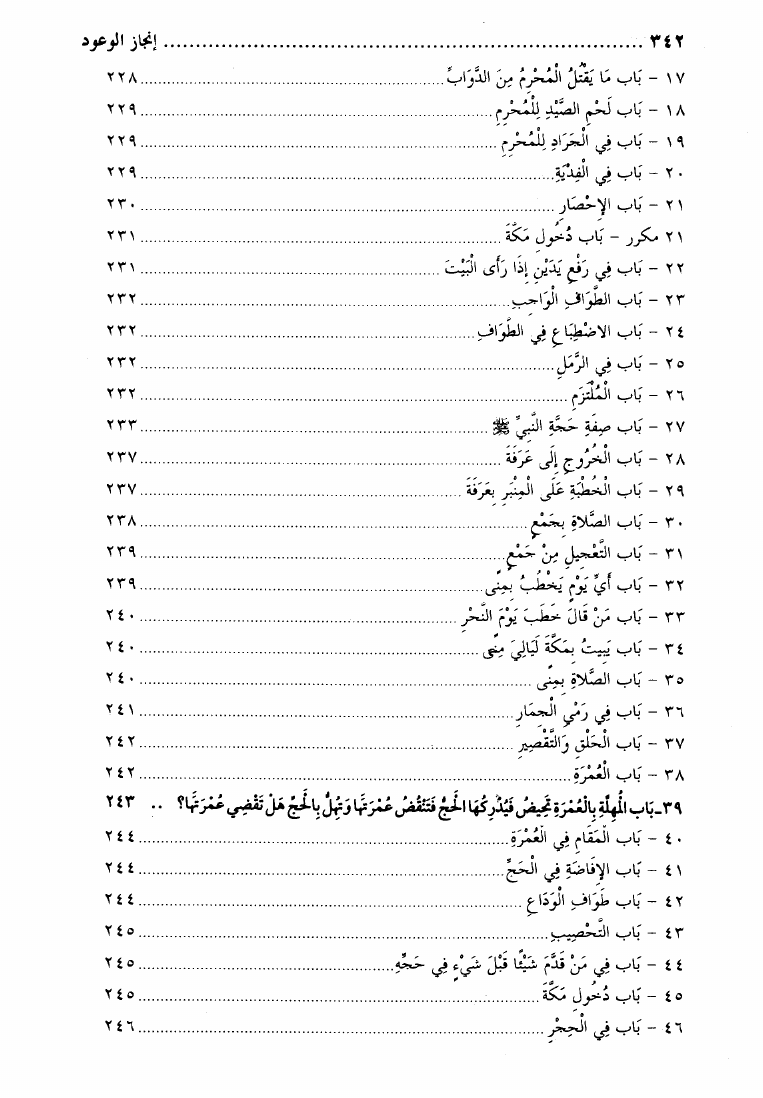 ٣٤٢ ........ إنجاز الوعود
١٧ - بَاب مَا يَقْتُلُ الْمُحْرِمُ مِنَ الدَّوَابِّ ........ ٢٢٨
١٨ - بَاب لَحْمِ الصَّيْدِ لِلْمُحْرِمِ ........ ٢٢٩
١٩ - بَاب فِي الْجَرَادِ لِلْمُحْرِمِ ........ ٢٢٩
٢٠ - بَاب فِي الْفِدْيَةِ ........ ٢٢٩
٢١ - بَاب الإِحْصَارِ ........ ٢٣٠
٢١ مكرر - بَاب دُخُولِ مَكَّةَ ........ ٢٣١
٢٢ - بَاب فِي رَفْعِ يَدَيْنِ إِذَا رَأَى الْبَيْتَ ........ ٢٣١
٢٣ - بَاب الطَّوَافِ الْوَاجِبِ ........ ٢٣٢
٢٤ - بَاب الاضْطِبَاعِ فِي الطَّوَافِ ........ ٢٣٢
٢٥ - بَاب فِي الرَّمَلِ ........ ٢٣٢
٢٦ - بَاب الْمُلْتَزَمِ ........ ٢٣٢
٢٧ - بَاب صِفَةِ حَجَّةِ النَّبِيِّ ﷺ ........ ٢٣٣
٢٨ - بَاب الْخُرُوجِ إِلَى عَرَفَةَ ........ ٢٣٧
٢٩ - بَاب الْخُطْبَةِ عَلَى الْمِنْبَرِ بِعَرَفَةَ ........ ٢٣٧
٣٠ - بَاب الصَّلاةِ بِجَمْعٍ ........ ٢٣٨
٣١ - بَاب التَّعْجِيلِ مِنْ جَمْعٍ ........ ٢٣٩
٣٢ - بَاب أَيِّ يَوْمٍ يَخْطُبُ بِمِنًى ........ ٢٣٩
٣٣ - بَاب مَنْ قَالَ خَطَبَ يَوْمَ النَّحْرِ ........ ٢٤٠
٣٤ - بَاب يَبِيتُ بِمَكَّةَ لَيَالِيَ مِنًى ........ ٢٤٠
٣٥ - بَاب الصَّلاةِ بِمِنًى ........ ٢٤٠
٣٦ - بَاب فِي رَمْيِ الْجِمَارِ ........ ٢٤١
٣٧ - بَاب الْحَلْقِ وَالتَّقْصِيرِ ........ ٢٤٢
٣٨ - بَاب الْعُمْرَةِ ........ ٢٤٢
٣٩ـ بَاب الْمُهِلَّةِ بِالْعُمْرَةِ تَحِيضُ فَيُدْرِكُهَا الْحَجُّ فَتَنْقُضُ عُمْرَتَهَا وَتُهِلُّ بِالْحَجِّ هَلْ تَقْضِي عُمْرَتَهَا؟ .. ٢٤٣
٤٠ - بَاب الْمَقَامِ فِي الْعُمْرَةِ ........ ٢٤٤
٤١ - بَاب الإِفَاضَةِ فِي الْحَجِّ ........ ٢٤٤
٤٢ - بَاب طَوَافِ الْوَدَاعِ ........ ٢٤٤
٤٣ - بَاب التَّحْصِيبِ ........ ٢٤٥
٤٤ - بَاب فِي مَنْ قَدَّمَ شَيْئًا قَبْلَ شَيْءٍ فِي حَجِّهِ ........ ٢٤٥
٤٥ - بَاب دُخُولِ مَكَّةَ ........ ٢٤٥
٤٦ - بَاب فِي الْحِجْرِ ........ ٢٤٦